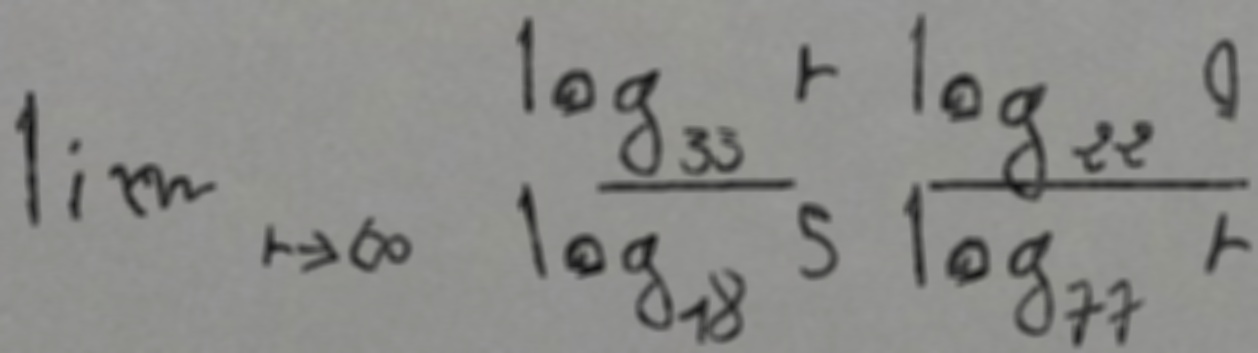 lim r→∞ log₃₃ r / log₁₈ 5 log₂₂ 9 / log₇₇ r